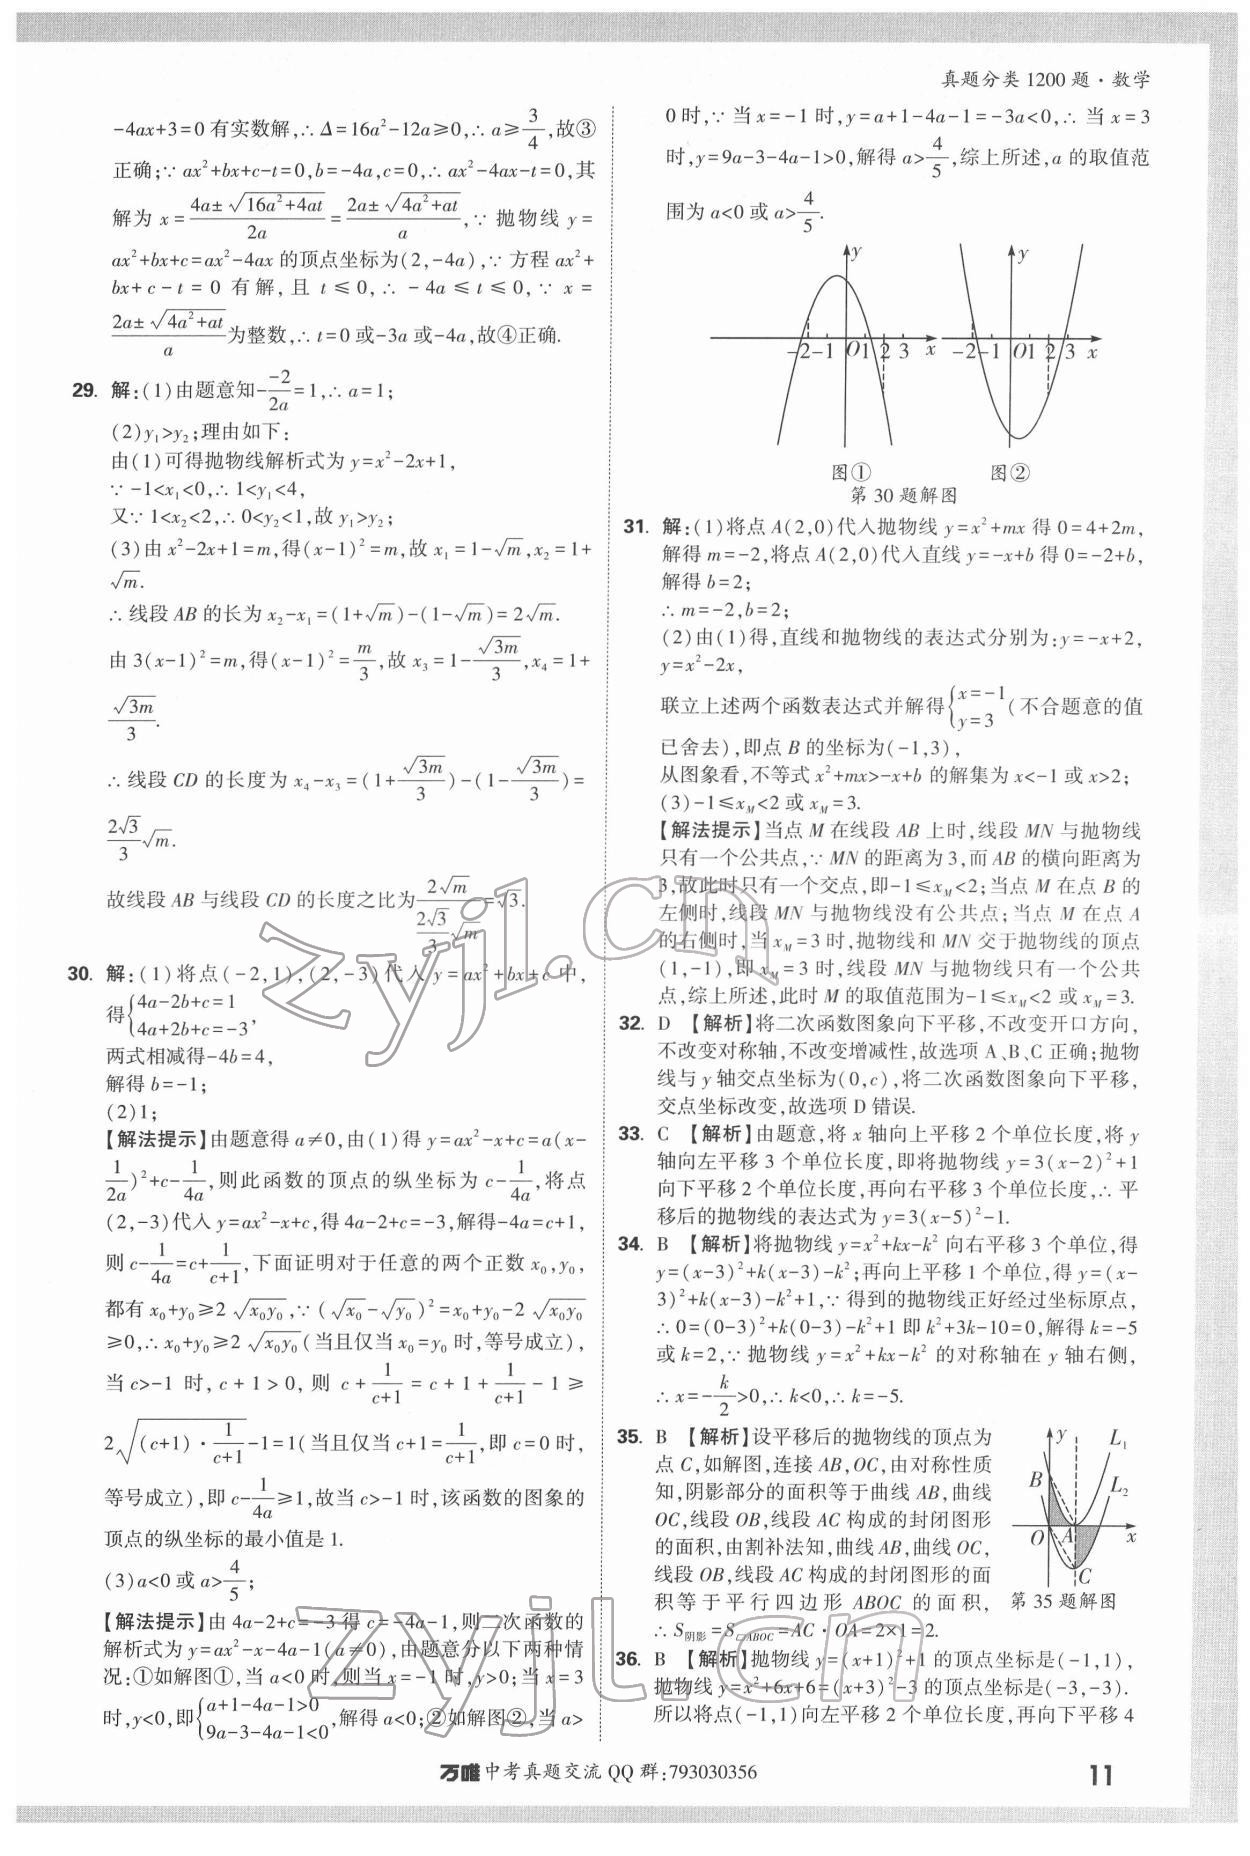 真题分类1200题·数学
-4ax+3=0有实数解,∴Δ=16a²-12a≥0,∴a≥3/4,故③
正确;∵ax²+bx+c-t=0,b=-4a,c=0,∴ax²-4ax-t=0,其
解为x=(4a±√(16a²+4at))/(2a)=(2a±√(4a²+at))/a,∵抛物线y=
ax²+bx+c=ax²-4ax的顶点坐标为(2,-4a),∵方程ax²+
bx+c-t=0有解,且t≤0,∴-4a≤t≤0,∵x=
(2a±√(4a²+at))/a为整数,∴t=0或-3a或-4a,故④正确.
29. 解:(1)由题意知-(-2)/(2a)=1,∴a=1;
(2)y₁>y₂;理由如下:
由(1)可得抛物线解析式为y=x²-2x+1,
∵-1<x₁<0,∴1<y₁<4,
又∵1<x₂<2,∴0<y₂<1,故y₁>y₂;
(3)由x²-2x+1=m,得(x-1)²=m,故x₁=1-√m,x₂=1+
√m.
∴线段AB的长为x₂-x₁=(1+√m)-(1-√m)=2√m.
由3(x-1)²=m,得(x-1)²=m/3,故x₃=1-√(3m)/3,x₄=1+
√(3m)/3.
∴线段CD的长度为x₄-x₃=(1+√(3m)/3)-(1-√(3m)/3)=
(2√3/3)√m.
故线段AB与线段CD的长度之比为2√m/((2√3/3)√m)=√3.
30. 解:(1)将点(-2,1),(2,-3)代入y=ax²+bx+c中,
得{4a-2b+c=1
4a+2b+c=-3,
两式相减得-4b=4,
解得b=-1;
(2)1;
【解法提示】由题意得a≠0,由(1)得y=ax²-x+c=a(x-
1/(2a))²+c-1/(4a),则此函数的顶点的纵坐标为c-1/(4a),将点
(2,-3)代入y=ax²-x+c,得4a-2+c=-3,解得-4a=c+1,
则c-1/(4a)=c+1/(c+1),下面证明对于任意的两个正数x₀,y₀,
都有x₀+y₀≥2√(x₀y₀),∵(√x₀-√y₀)²=x₀+y₀-2√(x₀y₀)
≥0,∴x₀+y₀≥2√(x₀y₀)(当且仅当x₀=y₀时,等号成立),
当c>-1时,c+1>0,则c+1/(c+1)=c+1+1/(c+1)-1≥
2√((c+1)·1/(c+1))-1=1(当且仅当c+1=1/(c+1),即c=0时,
等号成立),即c-1/(4a)≥1,故当c>-1时,该函数的图象的
顶点的纵坐标的最小值是1.
(3)a<0或a>4/5;
【解法提示】由4a-2+c=-3得c=-4a-1,则二次函数的
解析式为y=ax²-x-4a-1(a≠0),由题意分以下两种情
况:①如解图①,当a<0时,则当x=-1时,y>0;当x=3
时,y<0,即{a+1-4a-1>0
9a-3-4a-1<0,解得a<0;②如解图②,当a>
0时,∵当x=-1时,y=a+1-4a-1=-3a<0,∴当x=3
时,y=9a-3-4a-1>0,解得a>4/5,综上所述,a的取值范
围为a<0或a>4/5.
y
-2 -1 O 1 2 3 x
图①
y
-2 -1 O 1 2 3 x
图②
第30题解图
31. 解:(1)将点A(2,0)代入抛物线y=x²+mx得0=4+2m,
解得m=-2,将点A(2,0)代入直线y=-x+b得0=-2+b,
解得b=2;
∴m=-2,b=2;
(2)由(1)得,直线和抛物线的表达式分别为:y=-x+2,
y=x²-2x,
联立上述两个函数表达式并解得{x=-1
y=3(不合题意的值
已舍去),即点B的坐标为(-1,3),
从图象看,不等式x²+mx>-x+b的解集为x<-1或x>2;
(3)-1≤x_M<2或x_M=3.
【解法提示】当点M在线段AB上时,线段MN与抛物线
只有一个公共点,∵MN的距离为3,而AB的横向距离为
3,故此时只有一个交点,即-1≤x_M<2;当点M在点B的
左侧时,线段MN与抛物线没有公共点;当点M在点A
的右侧时,当x_M=3时,抛物线和MN交于抛物线的顶点
(1,-1),即x_M=3时,线段MN与抛物线只有一个公共
点,综上所述,此时M的取值范围为-1≤x_M<2或x_M=3.
32. D 【解析】将二次函数图象向下平移,不改变开口方向,
不改变对称轴,不改变增减性,故选项A、B、C正确;抛物
线与y轴交点坐标为(0,c),将二次函数图象向下平移,
交点坐标改变,故选项D错误.
33. C 【解析】由题意,将x轴向上平移2个单位长度,将y
轴向左平移3个单位长度,即将抛物线y=3(x-2)²+1
向下平移2个单位长度,再向右平移3个单位长度,∴平
移后的抛物线的表达式为y=3(x-5)²-1.
34. B 【解析】将抛物线y=x²+kx-k²向右平移3个单位,得
y=(x-3)²+k(x-3)-k²;再向上平移1个单位,得y=(x-
3)²+k(x-3)-k²+1,∵得到的抛物线正好经过坐标原点,
∴0=(0-3)²+k(0-3)-k²+1即k²+3k-10=0,解得k=-5
或k=2,∵抛物线y=x²+kx-k²的对称轴在y轴右侧,
∴x=-k/2>0,∴k<0,∴k=-5.
35. B 【解析】设平移后的抛物线的顶点为
点C,如解图,连接AB,OC,由对称性质
知,阴影部分的面积等于曲线AB,曲线
OC,线段OB,线段AC构成的封闭图形
的面积,由割补法知,曲线AB,曲线OC,
线段OB,线段AC构成的封闭图形的面
积等于平行四边形ABOC的面积,
∴S阴影=S▱ABOC=AC·OA=2×1=2.
y L₁
B L₂
O A x
C
第35题解图
36. B 【解析】抛物线y=(x+1)²+1的顶点坐标是(-1,1),
抛物线y=x²+6x+6=(x+3)²-3的顶点坐标是(-3,-3).
所以将点(-1,1)向左平移2个单位长度,再向下平移4
zyjl.cn
zyjl.cn
万唯中考真题交流QQ群:793030356
11